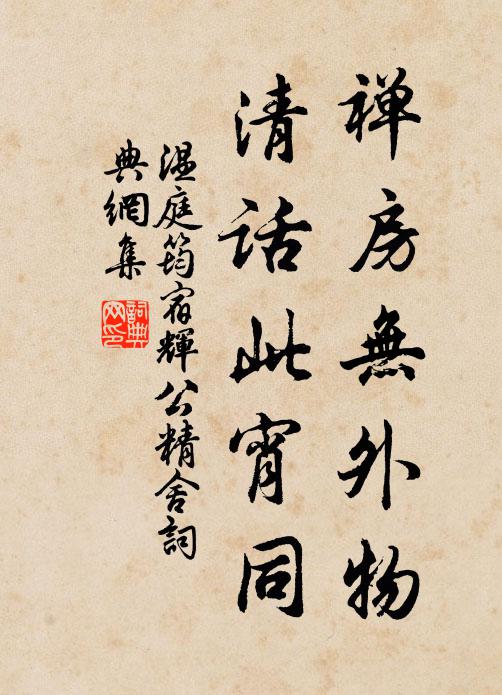 禅房無外物
清話此宵同
温庭筠宿輝公精舍詞
典網集
詞典网印